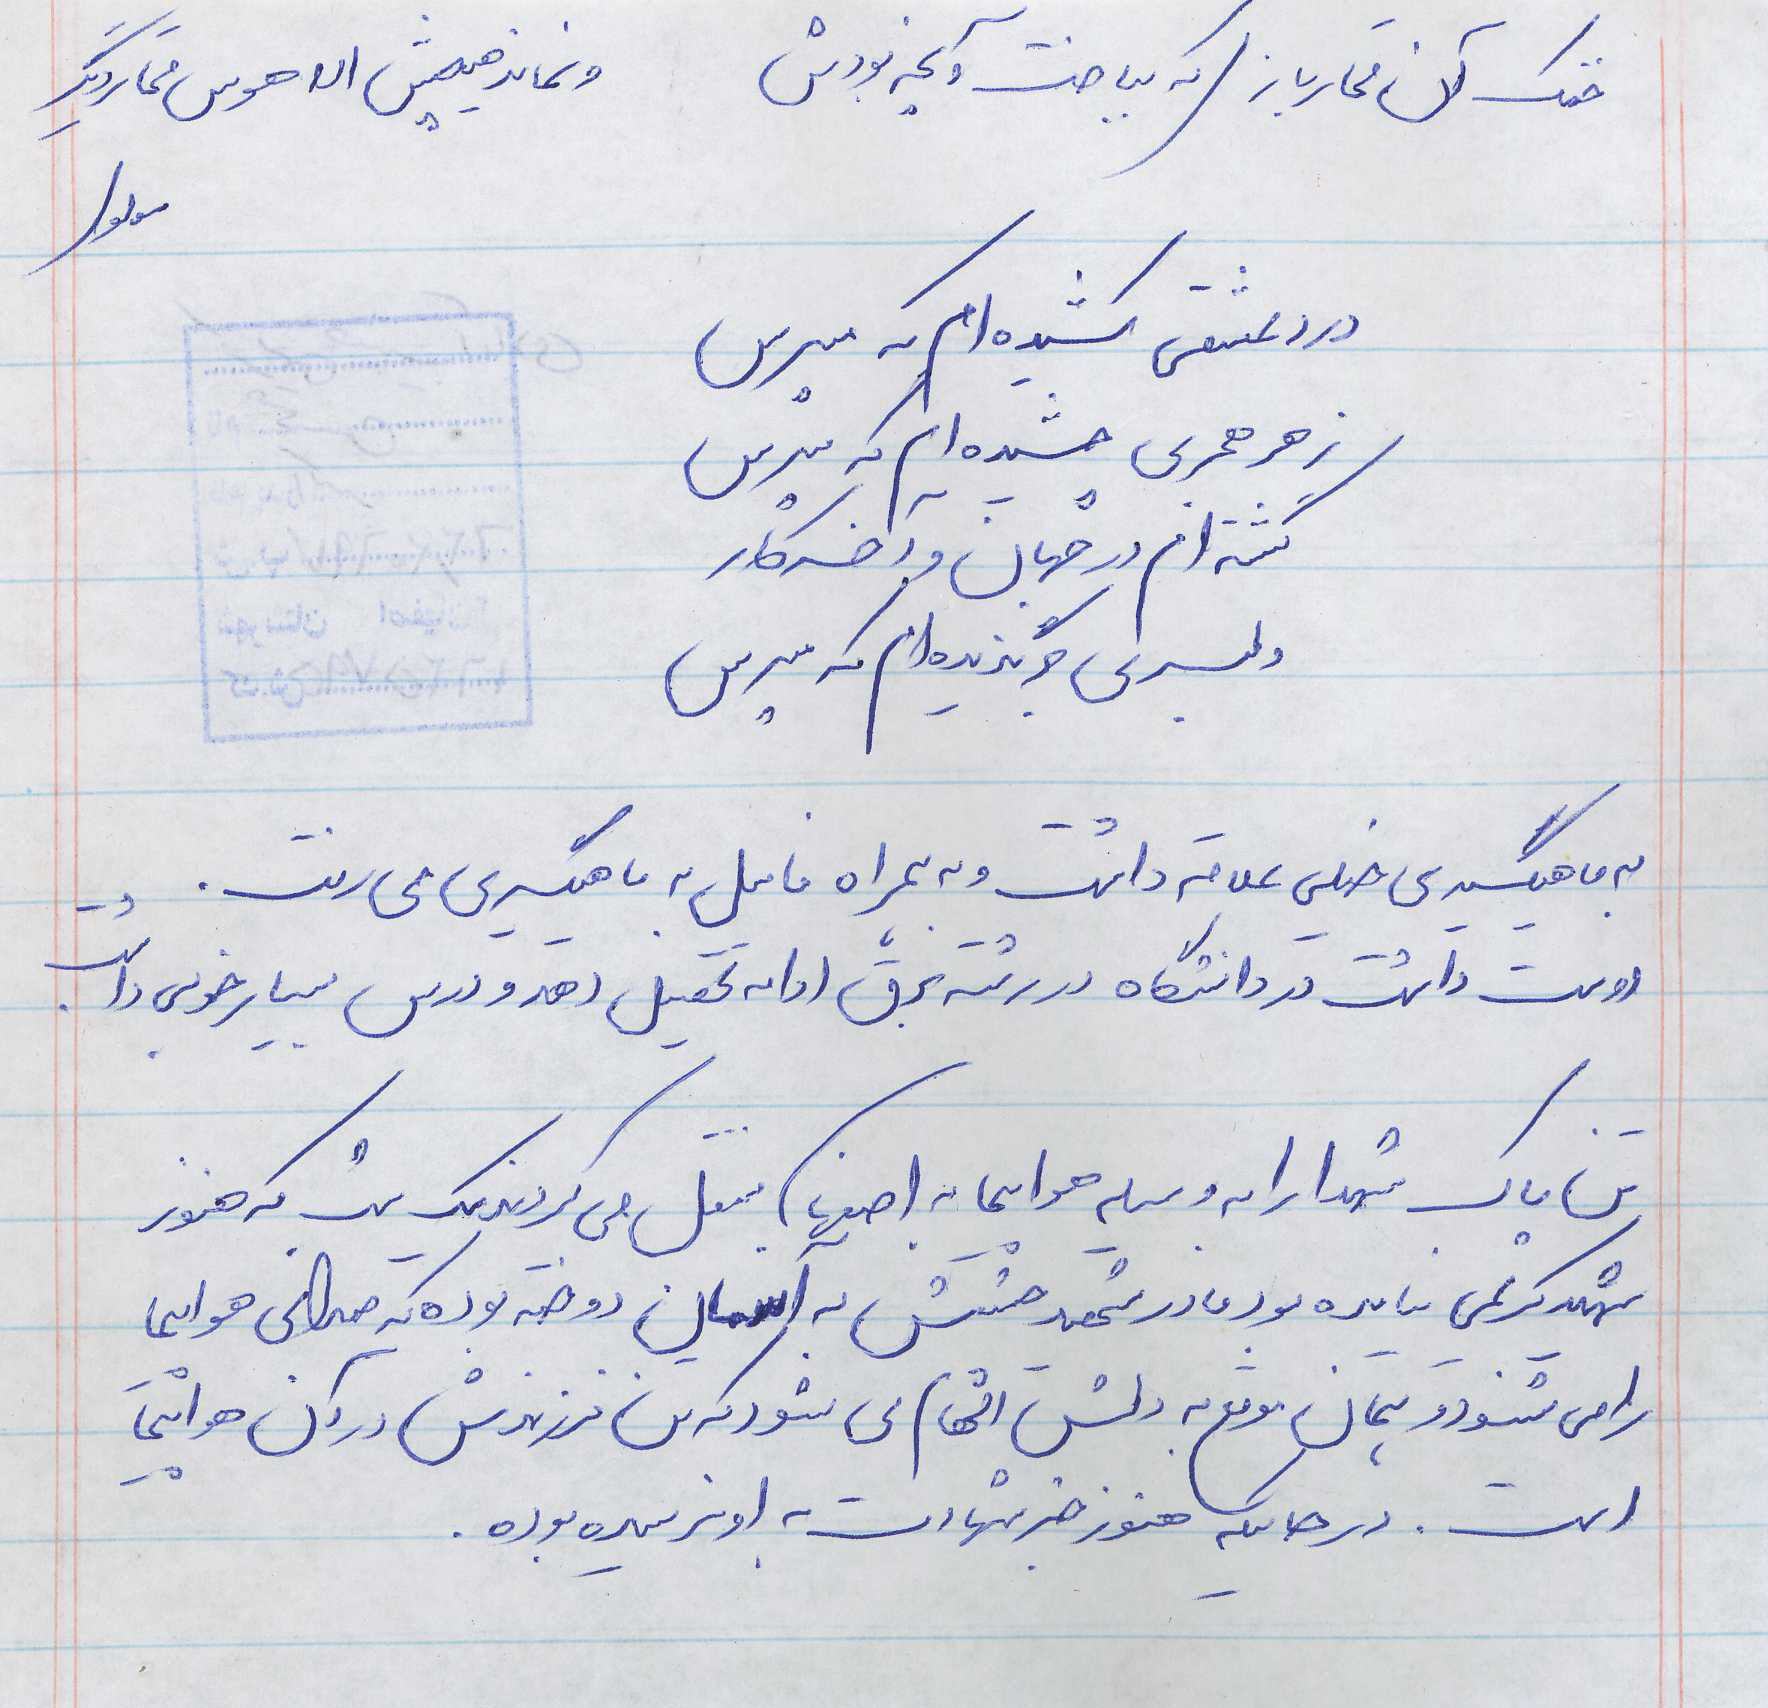 خنک آن قماربازی که بباخت آنچه بودش ونماند هیچش الا هوس قمار دیگر
مولوی
درد عشقی کشیده ام که مپرس
زهر هجری چشیده ام که مپرس
گشته ام در جهان و آخر کار
دلبری برگزیده ام که مپرس
به ماهیگیری خیلی علاقه داشت و به همراه فامیل به ماهیگیری می رفت.
دوست داشت در دانشگاه در رشته برق ادامه تحصیل دهد و درس بسیار خوبی داشت.
تن پاک شهدا را به وسیله هواپیما به اصفهان منتقل می کردند یک شب که هنوز
شهید کریمی نیامده بود مادر شهید چشمش به آسمان دوخته بوده که صدای هواپیما
را می شنود و همان موقع به دلش الهام می شود که تن فرزندش در آن هواپیما
است. در حالیکه هنوز خبر شهادت به او نرسیده بوده.
شهرستان اصفهان